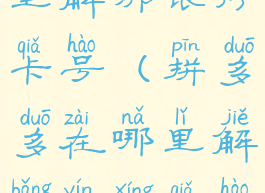 里解那银行
qiǎ hào pīn duō
卡号（拼多
duō zài nǎ lǐ jiě
多在哪里解
bǎng yín xíng qiǎ hào